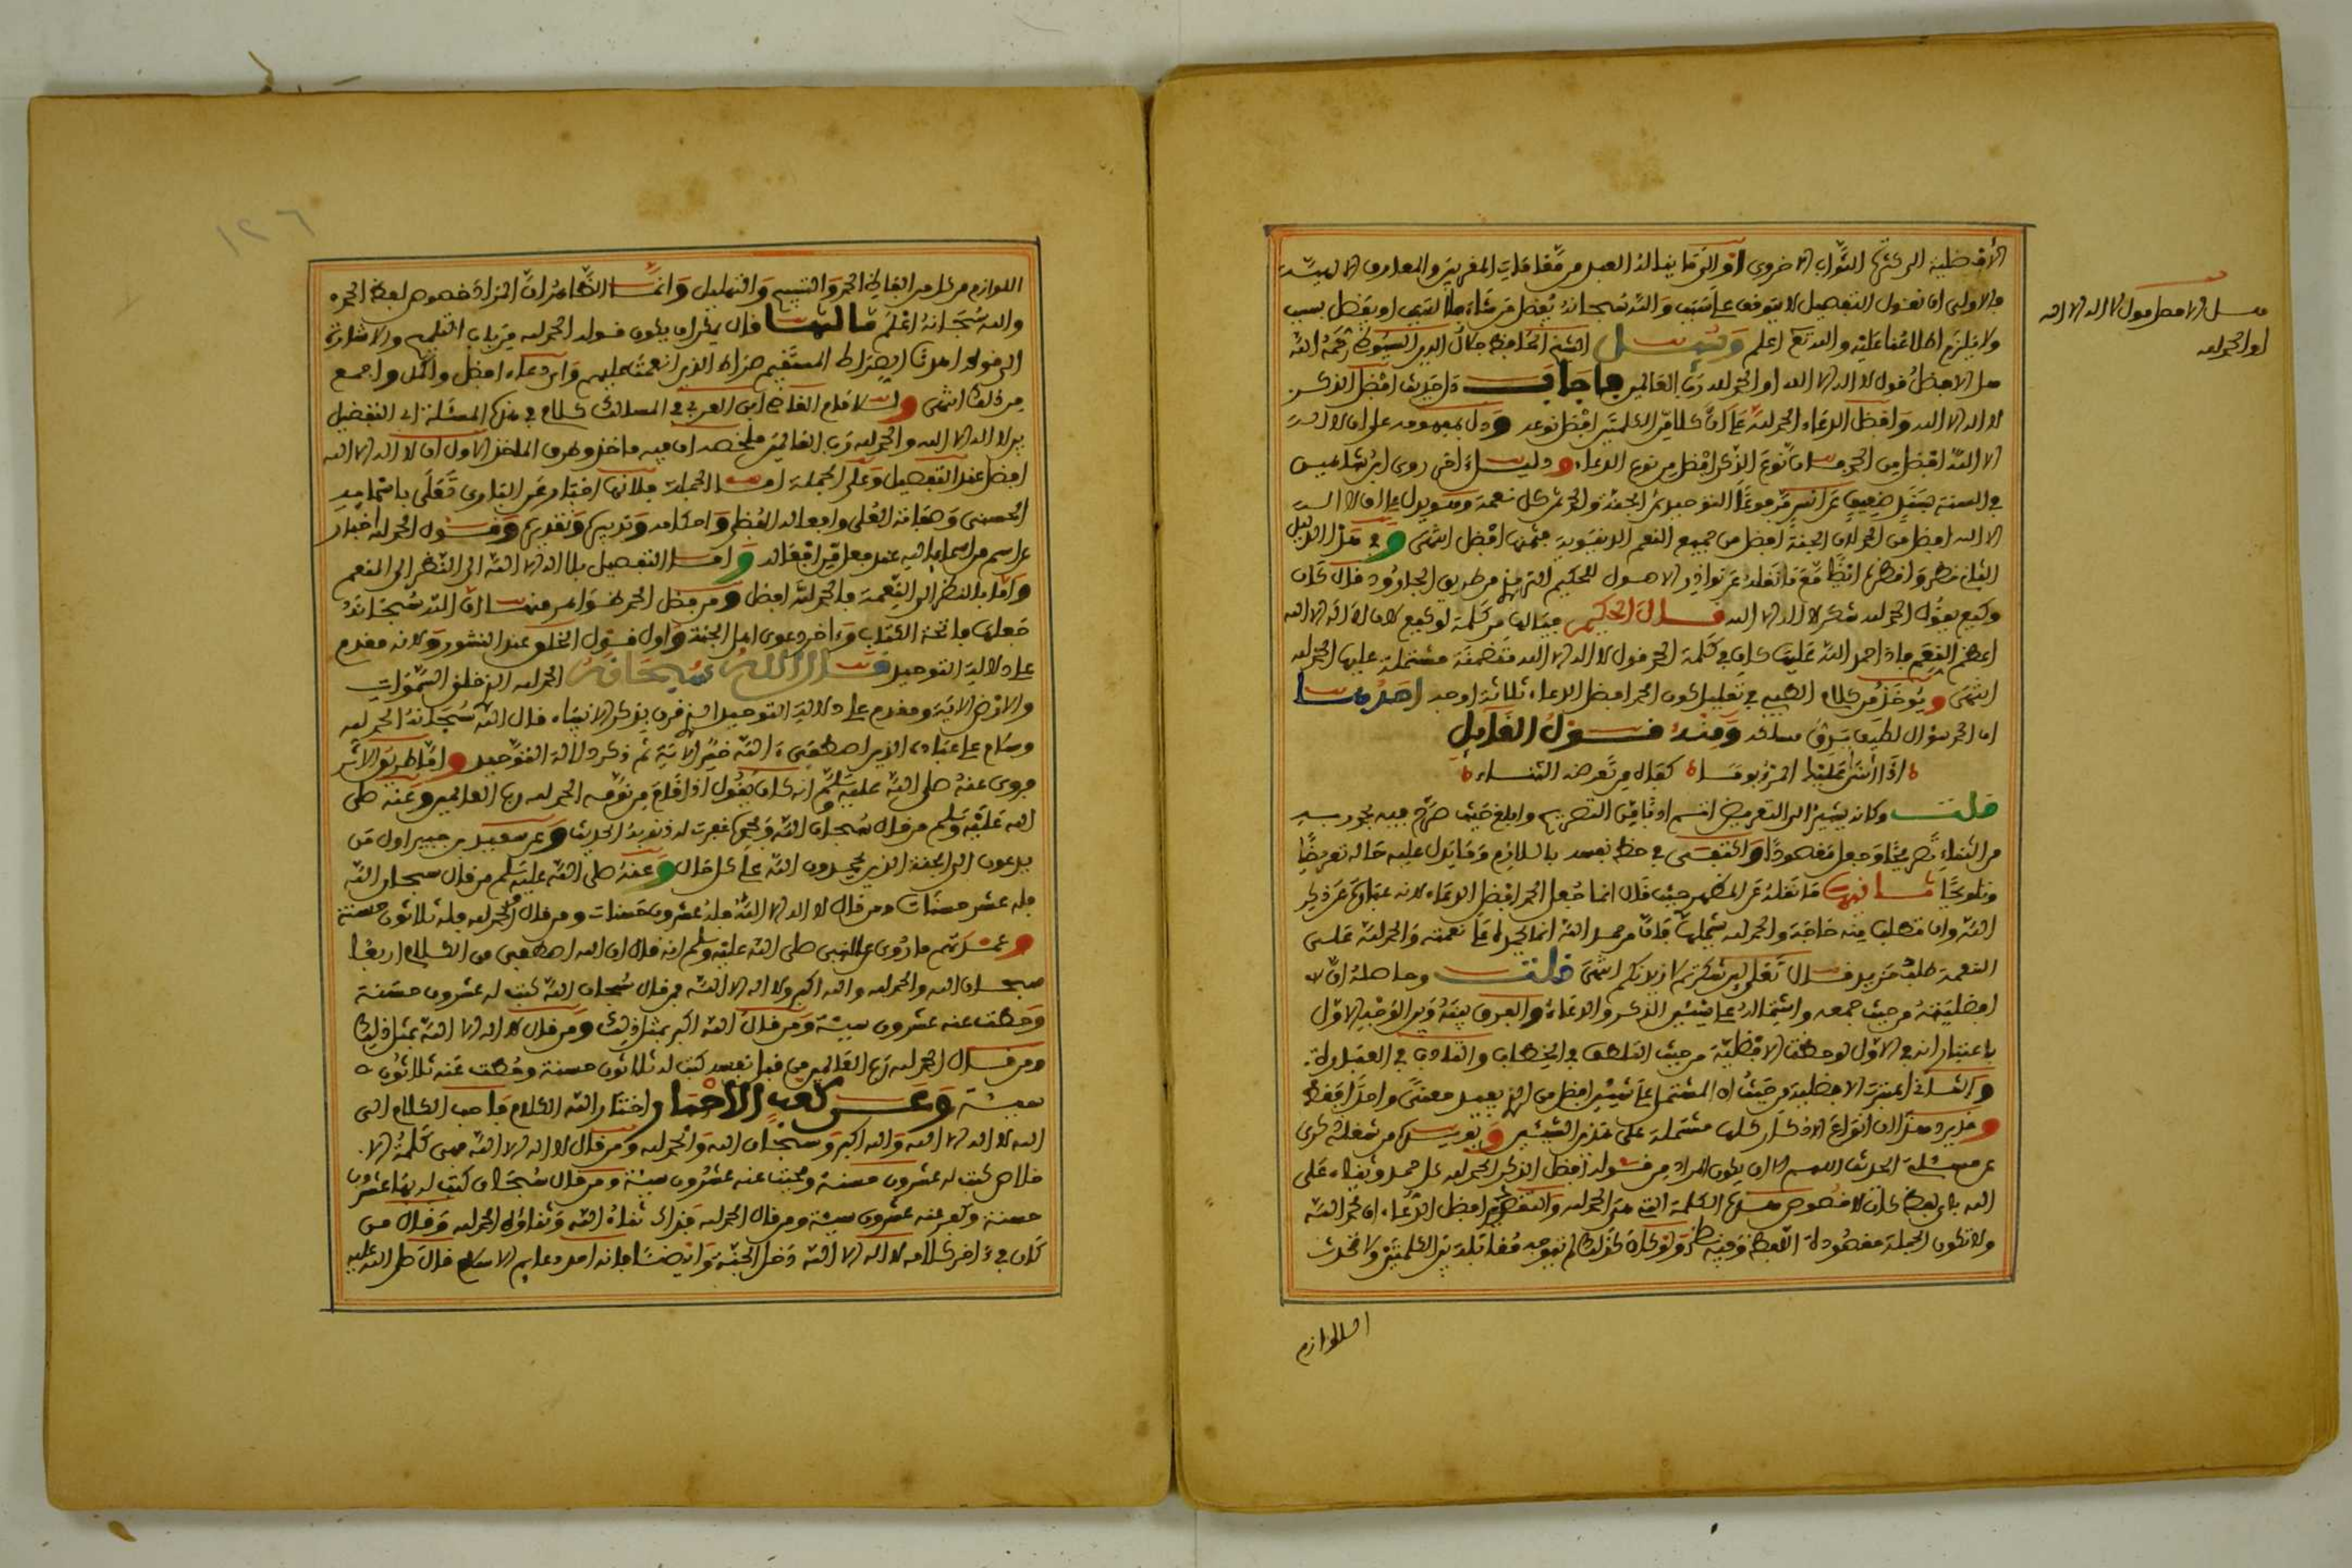 الأفضلية الى كثرة الثواب الاخروي او الى ما يناله العبد من مقامات المقربين والمعارف الالهية
والاولى ان نقول التفضيل لا يتوقف على سبب والله سبحانه يفضل من شاء بلا سبب او يفضل بسبب
ولا يلزم اطلاعنا عليه والله تع اعلم وسئل الشيخ الحافظ جلال الدين السيوطي رحمه الله
هل الافضل قول لا اله الا الله او الحمد لله رب العالمين فاجاب دل حديث افضل الذكر
لا اله الا الله وافضل الدعاء الحمد لله على ان كلا من الكلمتين افضل نوعه ودل بمفهومه على ان لا اله
الا الله افضل من الحمد فان نوع الذكر افضل من نوع الدعاء ودليل اخر روى ابن شاهين
في السنة بسند ضعيف عن انس مرفوعا التوحيد ثمن الجنة والحمد ثمن كل نعمة وهو يدل على ان لا اله
الا الله افضل من الحمد لان الجنة افضل من جميع النعم الدنيوية فثمنها افضل انتهى وفي هذا الدليل
الثاني نظر وانظر ايضا مع ما نقله عن نوادر الاصول للحكيم الترمذي من طريق الجارود قال كان
وكيع يقول الحمد لله شكر لا اله الا الله قال الحكيم فيالها من كلمة لوكيع لان لا اله الا الله
اعظم النعم فاذا حمد الله عليها كان في كلمة الحمد قول لا اله الا الله متضمنة مشتملة عليها الحمد لله
انتهى ويؤخذ من كلام الطيبي في تعليل كون الحمد افضل الدعاء ثلاثة اوجه احدها
ان الحمد سؤال لطيف يدق مسلكه ومنه قول القائل
اذا اثنى عليك المرء يوما كفاه من تعرضه الثناء
قلت وكانه يشير الى التعريض
من الثناء تصريحا وجعل مقصودا واكتفى في حظ نفسه باللازم وما يدل عليه حاله تعريضا
وتلويحا ثانيها ما نقله عن المظهر حيث قال انما جعل الحمد افضل الدعاء لانه عبارة عن ذكر
الله وان تطلب منه حاجة والحمد لله يشملها فان من حمد الله انما يحمده على نعمته والحمد لله على
النعمة طلب مزيد قال تعلى لئن شكرتم لازيدنكم انتهى قلت وحاصله ان لا
افضليته من حيث جمعه واشتماله على شيئين الذكر والدعاء والفرق بينه وبين الوجه الاول
باعتبار انه في الاول لوحظت الافضلية من حيث التلطف في الخطاب والتادب في العبارة
والثاني اعتبرت الافضلية من حيث ان المشتمل على شيئين افضل من الذي يفيد معنى واحدا فقط
وقد يرد هذا لان انواع الاذكار كلها مشتملة على هذين الشيئين
عن مسئلة الحديث اللهم الا ان يكون المراد من قوله افضل الذكر الحمد لله كل حمد وثناء على
الله باي لفظ كان لا خصوص هذه الكلمة التي هي الحمد لله والتقدير افضل الدعاء ان تحمد الله
ولا تكون الجملة مقصودة اللفظ وفيه نظر ولو كان كذلك لم تتوجه مقابلته بين الكلمتين ولا تحدث
اللوازم
هل الافضل قول لا اله الا الله
او الحمد لله
١٢٦
والله سبحانه اعلم ثالثها قال يمكن ان يكون قوله الحمد لله من باب التلميح والاشارة
الى قوله اهدنا الصراط المستقيم صراط الذين انعمت عليهم واي دعاء افضل واكمل واجمع
من ذلك انتهى وللامام القاضي ابن العربي في المسالك كلام في هذه المسئلة اي التفضيل
بين لا اله الا الله والحمد لله رب العالمين ملخصه ان فيه ماخذ وطرق الماخذ الاول ان لا اله الا الله
افضل عند التفصيل وعلى الجملة اما الجملة فلانها اخبار عن الباري تعلى باسمائه
الحسنى وصفاته العلى وافعاله العظمى واحكامه وتنزيهه وتقديسه وقول الحمد لله اخبار
عن اسم من اسمائه اليه عند فعل من افعاله واما التفصيل فلا اله الا الله الى النظر الى النعم
واما بالنظر الى النعمة فالحمد لله افضل ومن فضل الحمد ظواهر منها ان الله سبحانه
جعلها فاتحة الكتاب واخر دعوى اهل الجنة واول قول الخلق عند النشور ولانه مقدم
على دلالة التوحيد قال الله سبحانه الحمد لله الذي خلق السموات
والارض الاية ومقدم على دلالة التوحيد الذي قرن بذكر الانبياء قال الله سبحانه الحمد لله
وسلام على عباده الذين اصطفى ءالله خير الاية ثم ذكر دلالة التوحيد واما طريق الاثر
فروي عنه صلى الله عليه وسلم انه كان يقول اذا قام من نومه الحمد لله رب العالمين وعنه صلى
الله عليه وسلم من قال سبحان الله وبحمده غفرت له ذنوبه الحديث وعن سعيد بن جبير اول من
يدعون الى الجنة الذين يحمدون الله على كل حال وعنه صلى الله عليه وسلم من قال سبحان الله
فله عشر حسنات ومن قال لا اله الا الله فله عشرون حسنات ومن قال الحمد لله فله ثلاثون حسنة
وعمدتهم ما روي عن النبي صلى الله عليه وسلم انه قال ان الله اصطفى من الكلام اربعا
سبحان الله والحمد لله والله اكبر ولا اله الا الله فمن قال سبحان الله كتب له عشرون حسنة
وحطت عنه عشرون سيئة ومن قال الله اكبر بمثل ذلك ومن قال لا اله الا الله بمثل ذلك
ومن قال الحمد لله رب العالمين من قبل نفسه كتب له ثلاثون حسنة وحطت عنه ثلاثون
سيئة وعن كعب الاحبار اختار الله الكلام فاحب الكلام الى
الله لا اله الا الله والله اكبر وسبحان الله والحمد لله ومن قال لا اله الا الله فهي كلمة الا
خلاص كتب له عشرون حسنة ومحيت عنه عشرون سيئة ومن قال سبحان كتب له بها عشرون
حسنة وكفر عنه عشرون سيئة ومن قال الحمد لله فذاك ثناء الله وثناؤه الحمد لله وقال من
كان في ءاخر كلامه لا اله الا الله دخل الجنة وايضا فانه احد دعايم الاسلام قال صلى الله عليه